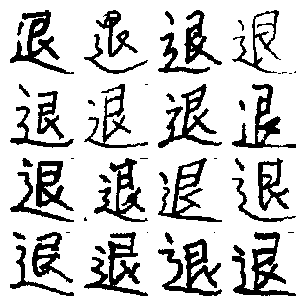 退退退退
退退退退
退退退退
退退退退